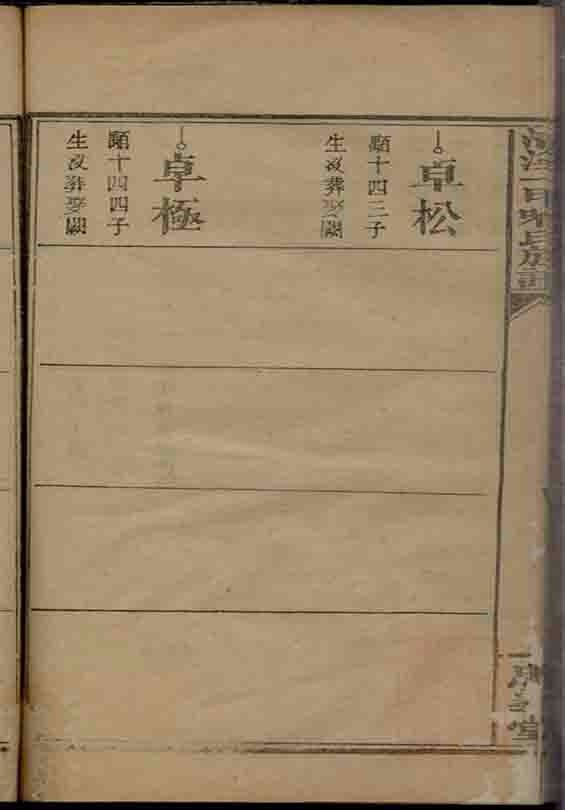 卓松
顯十四三子
生歿葬娶闕
卓極
顯十四四子
生歿葬娶闕
氏族譜
堂